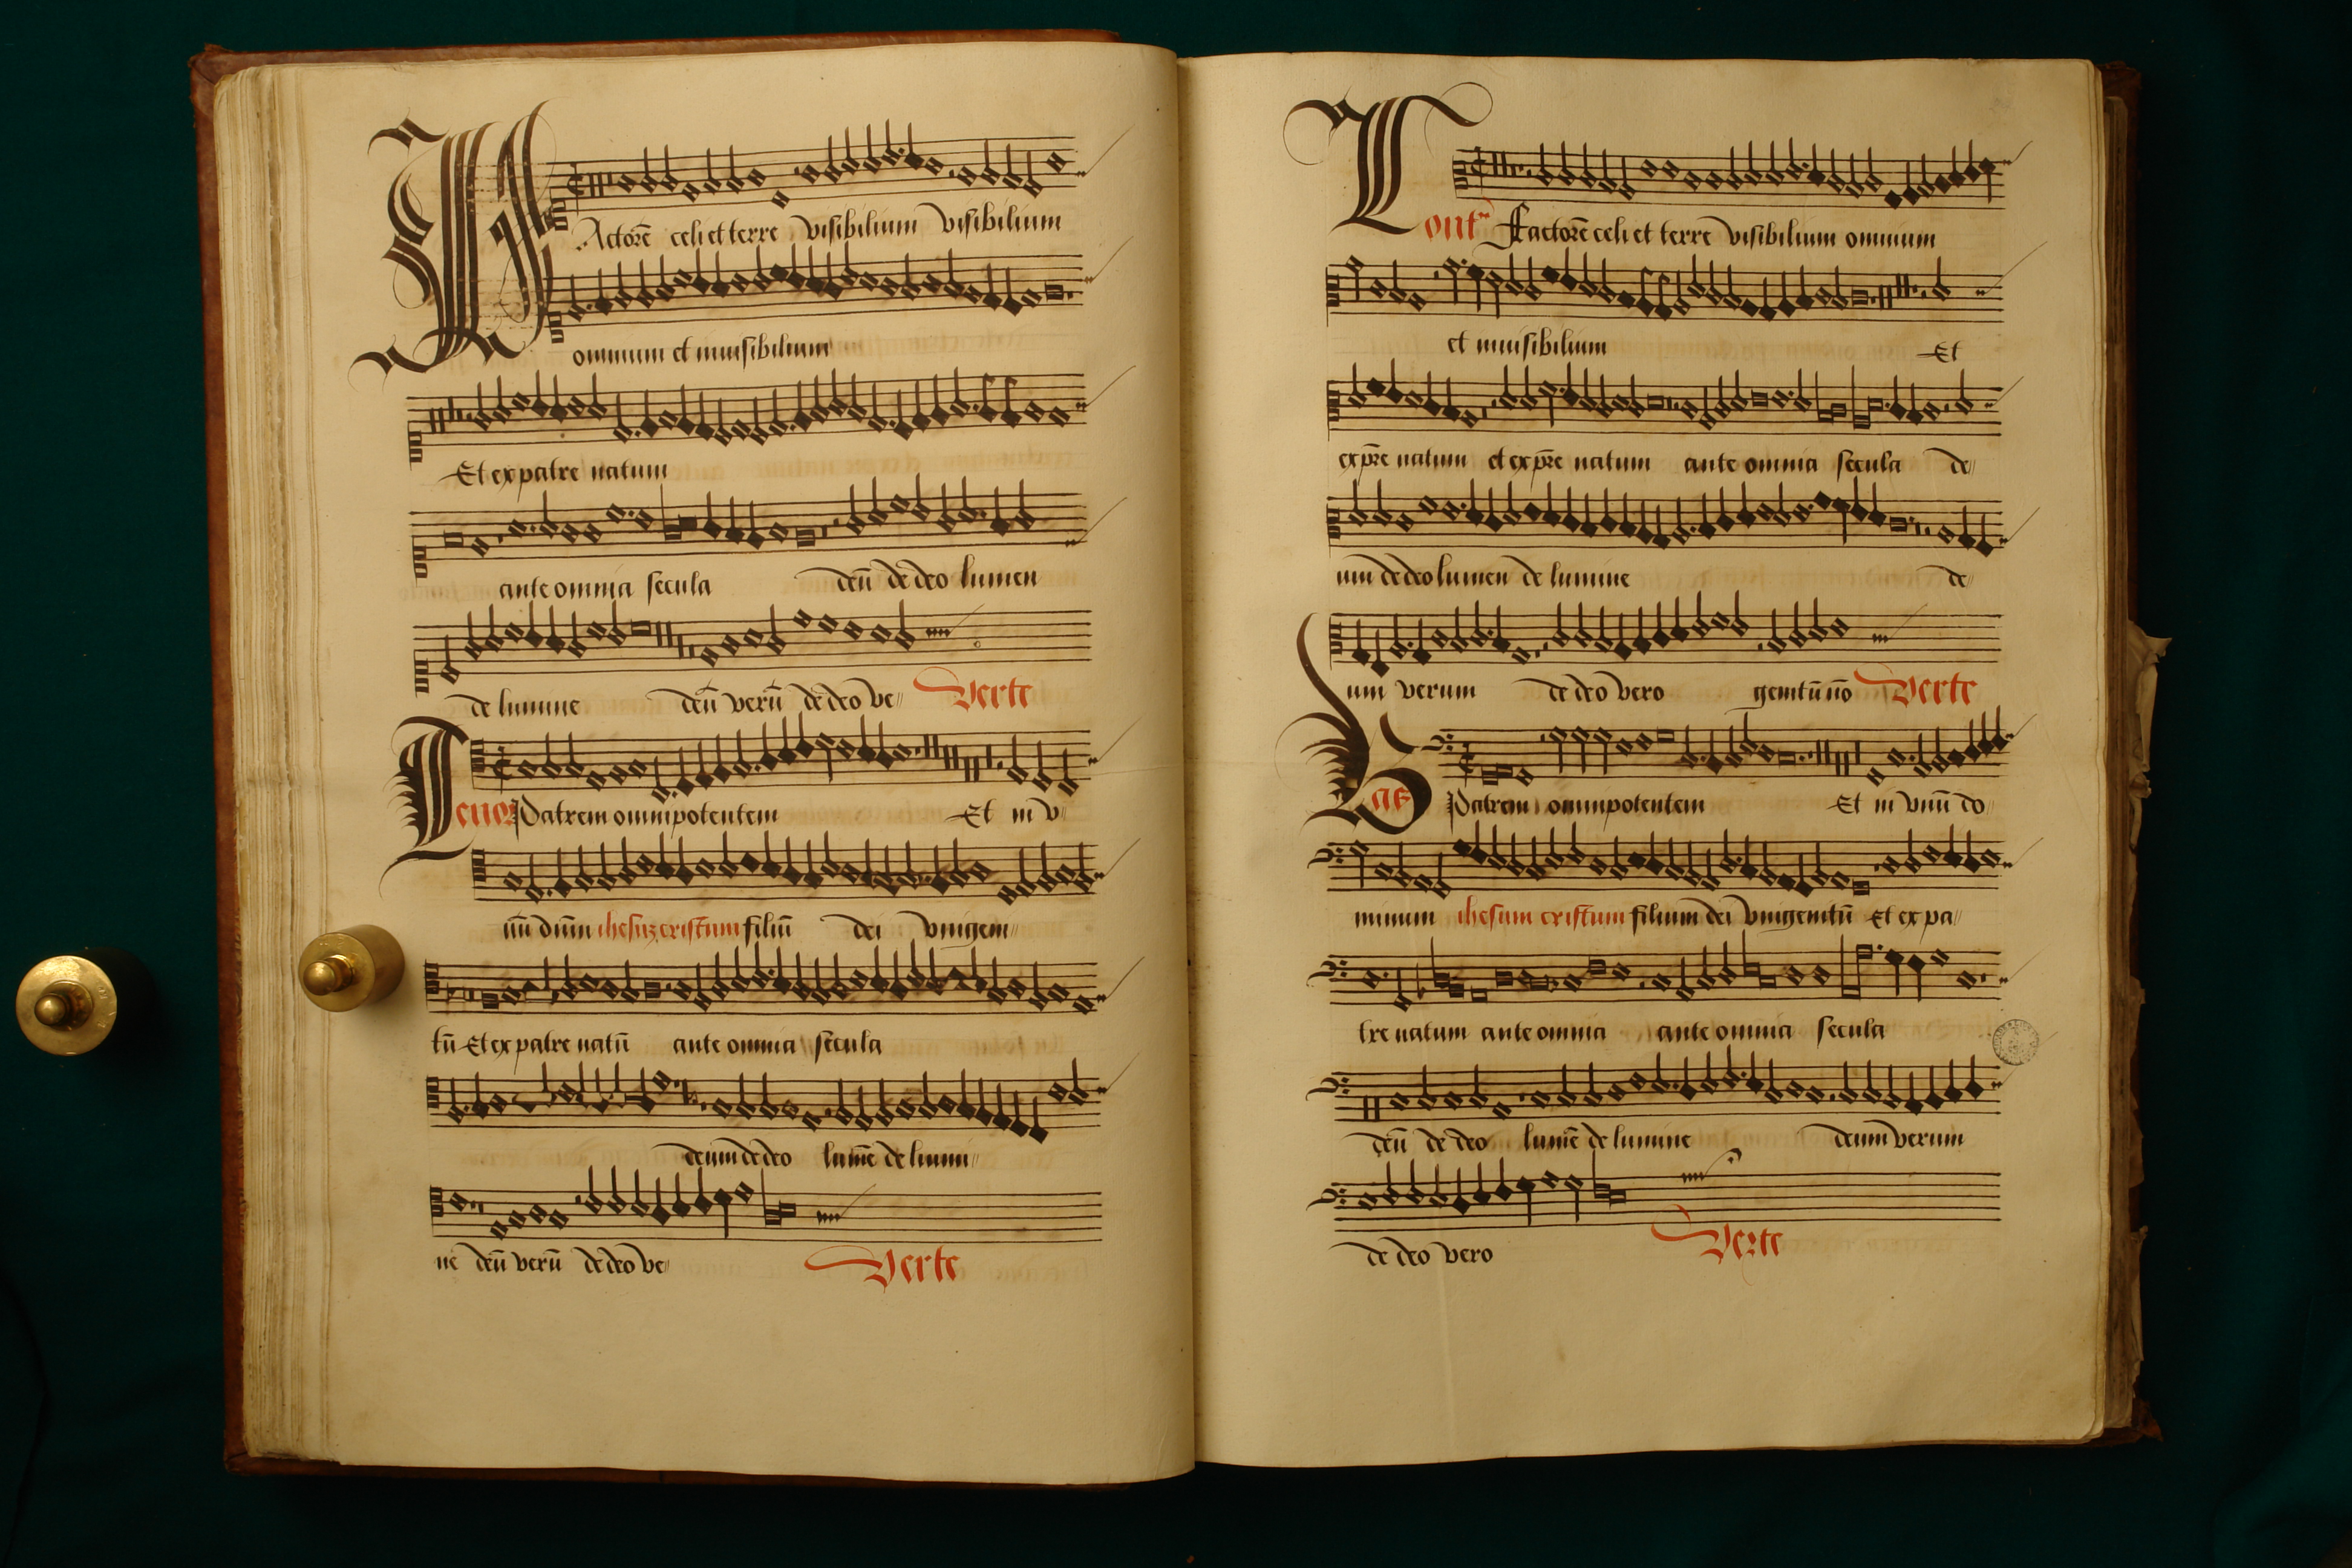 FActorē celi et terre visibilium visibilium
omnium et inuisibilium
Et ex patre natum
ante omnia secula deū de deo lumen
de lumine deū verū de deo ve〃 Verte
Tenor Patrem omnipotentem Et in v〃
nū dūm ihesuz cristum filiū dei vnigeni〃
tū Et ex patre natū ante omnia secula
deum de deo lumē de lumi〃
ne deū verū de deo ve〃 Verte
Cont Factorē celi et terre visibilium omnium
et inuisibilium Et
ex pr̄e natum et ex pr̄e natum ante omnia secula de〃
um de deo lumen de lumine de〃
um verum de deo vero genitū nō Verte
Bas Patrem omnipotentem Et in vnū do〃
minum ihesum cristum filium dei vnigenitū Et ex pa〃
tre natum ante omnia ante omnia secula
deū de deo lumē de lumine deum verum
de deo vero Verte